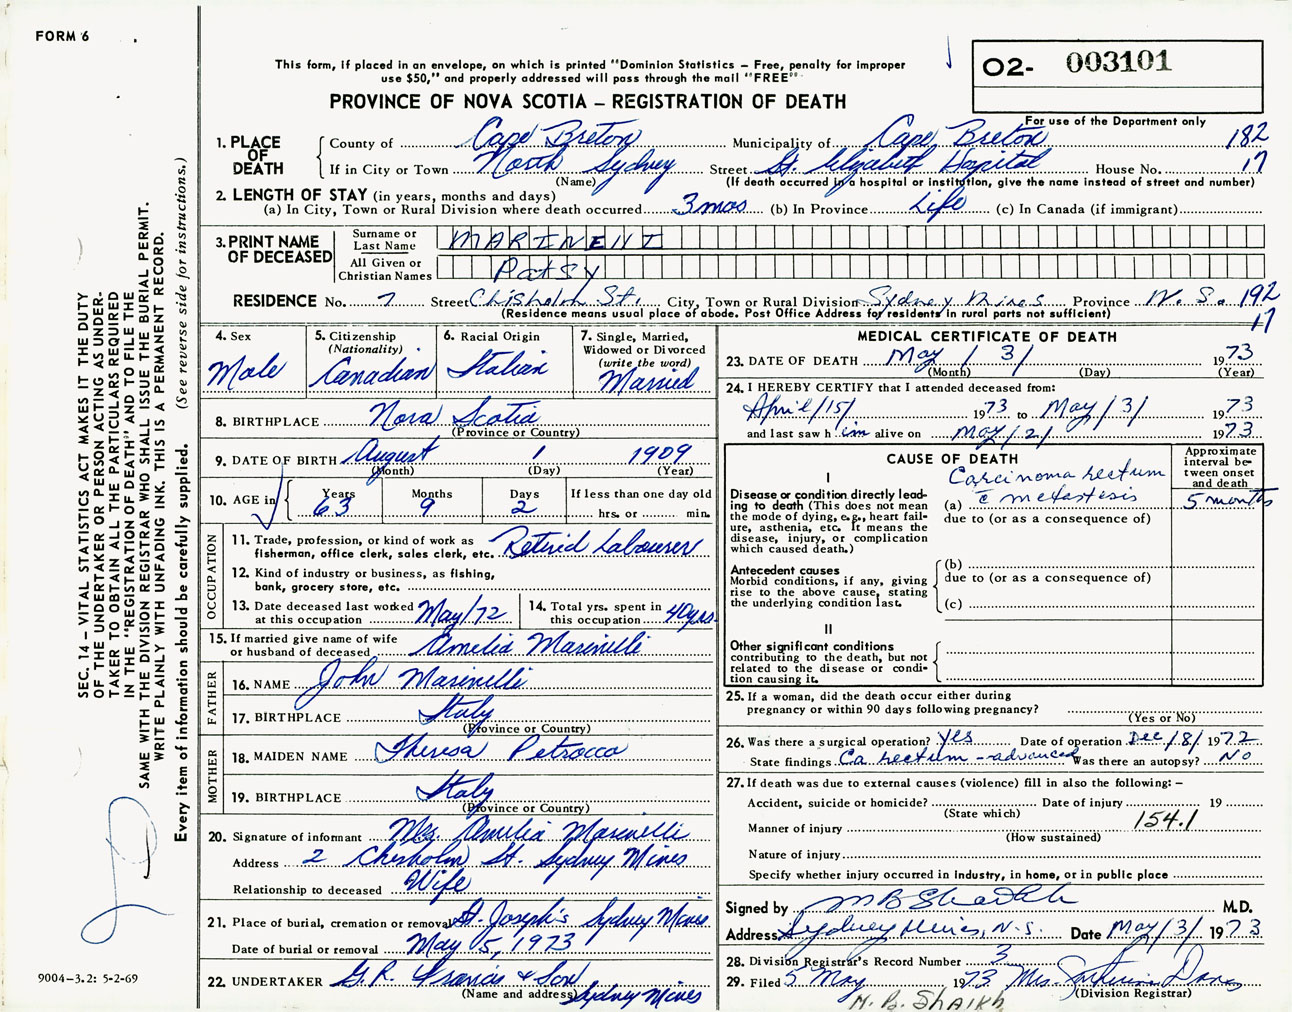 FORM 6
This form, if placed in an envelope, on which is printed "Dominion Statistics – Free, penalty for improper
use $50," and properly addressed will pass through the mail "FREE"
O2- 003101
For use of the Department only
PROVINCE OF NOVA SCOTIA – REGISTRATION OF DEATH
1. PLACE OF DEATH County of Cape Breton Municipality of Cape Breton 182
If in City or Town North Sydney Street St. Elizabeth Hospital House No. 17
(Name) (If death occurred in a hospital or institution, give the name instead of street and number)
2. LENGTH OF STAY (in years, months and days)
(a) In City, Town or Rural Division where death occurred 3 mos (b) In Province Life (c) In Canada (if immigrant)
3. PRINT NAME OF DECEASED Surname or Last Name MARINENI
All Given or Christian Names Patsy
RESIDENCE No. 7 Street Chisholm St. City, Town or Rural Division Sydney Mines Province N. S. 192
(Residence means usual place of abode. Post Office Address for residents in rural parts not sufficient) 17
4. Sex Male
5. Citizenship (Nationality) Canadian
6. Racial Origin Italian
7. Single, Married, Widowed or Divorced (write the word) Married
8. BIRTHPLACE Nova Scotia
(Province or Country)
9. DATE OF BIRTH August 1 1909
(Month) (Day) (Year)
10. AGE in Years 63 Months 9 Days 2 If less than one day old
hrs. or min.
OCCUPATION
11. Trade, profession, or kind of work as
fisherman, office clerk, sales clerk, etc. Retired Labourer
12. Kind of industry or business, as fishing,
bank, grocery store, etc.
13. Date deceased last worked at this occupation May/72
14. Total yrs. spent in this occupation 40yrs.
15. If married give name of wife
or husband of deceased Amelia Marinelli
FATHER
16. NAME John Marinelli
17. BIRTHPLACE Italy
(Province or Country)
MOTHER
18. MAIDEN NAME Theresa Petrocco
19. BIRTHPLACE Italy
(Province or Country)
20. Signature of informant Mrs. Amelia Marinelli
Address 2 Chisholm St. Sydney Mines
Relationship to deceased Wife
21. Place of burial, cremation or removal St. Joseph's Sydney Mines
Date of burial or removal May 5, 1973
22. UNDERTAKER G. R. Francis & Son
(Name and address) Sydney Mines
MEDICAL CERTIFICATE OF DEATH
23. DATE OF DEATH May / 3/ 1973
(Month) (Day) (Year)
24. I HEREBY CERTIFY that I attended deceased from:
April/15/ 1973 to May/3/ 1973
and last saw him alive on May/2/ 1973
CAUSE OF DEATH
Approximate interval between onset and death
I
Disease or condition directly leading to death (This does not mean the mode of dying, e.g., heart failure, asthenia, etc. It means the disease, injury, or complication which caused death.)
(a) Carcinoma rectum c̄ metastesis 5 months
due to (or as a consequence of)
Antecedent causes
Morbid conditions, if any, giving rise to the above cause, stating the underlying condition last.
(b)
due to (or as a consequence of)
(c)
II
Other significant conditions
contributing to the death, but not related to the disease or condition causing it.
25. If a woman, did the death occur either during
pregnancy or within 90 days following pregnancy?
(Yes or No)
26. Was there a surgical operation? Yes Date of operation Dec /8/ 1972
State findings Ca rectum - advanced Was there an autopsy? No
27. If death was due to external causes (violence) fill in also the following: –
Accident, suicide or homicide? Date of injury 19
(State which)
Manner of injury 154.1
(How sustained)
Nature of injury
Specify whether injury occurred in industry, in home, or in public place
Signed by M B Shaikh M.D.
Address Sydney Mines, N.S. Date May/3/ 1973
28. Division Registrar's Record Number 3
29. Filed 5 May 1973 Mrs.
(Division Registrar)
M. B. SHAIKH
SEC. 14 – VITAL STATISTICS ACT MAKES IT THE DUTY
OF THE UNDERTAKER OR PERSON ACTING AS UNDER-
TAKER TO OBTAIN ALL THE PARTICULARS REQUIRED
IN THE "REGISTRATION OF DEATH" AND TO FILE THE
SAME WITH THE DIVISION REGISTRAR WHO SHALL ISSUE THE BURIAL PERMIT.
WRITE PLAINLY WITH UNFADING INK. THIS IS A PERMANENT RECORD.
Every item of information should be carefully supplied. (See reverse side for instructions.)
9004–3.2: 5-2-69